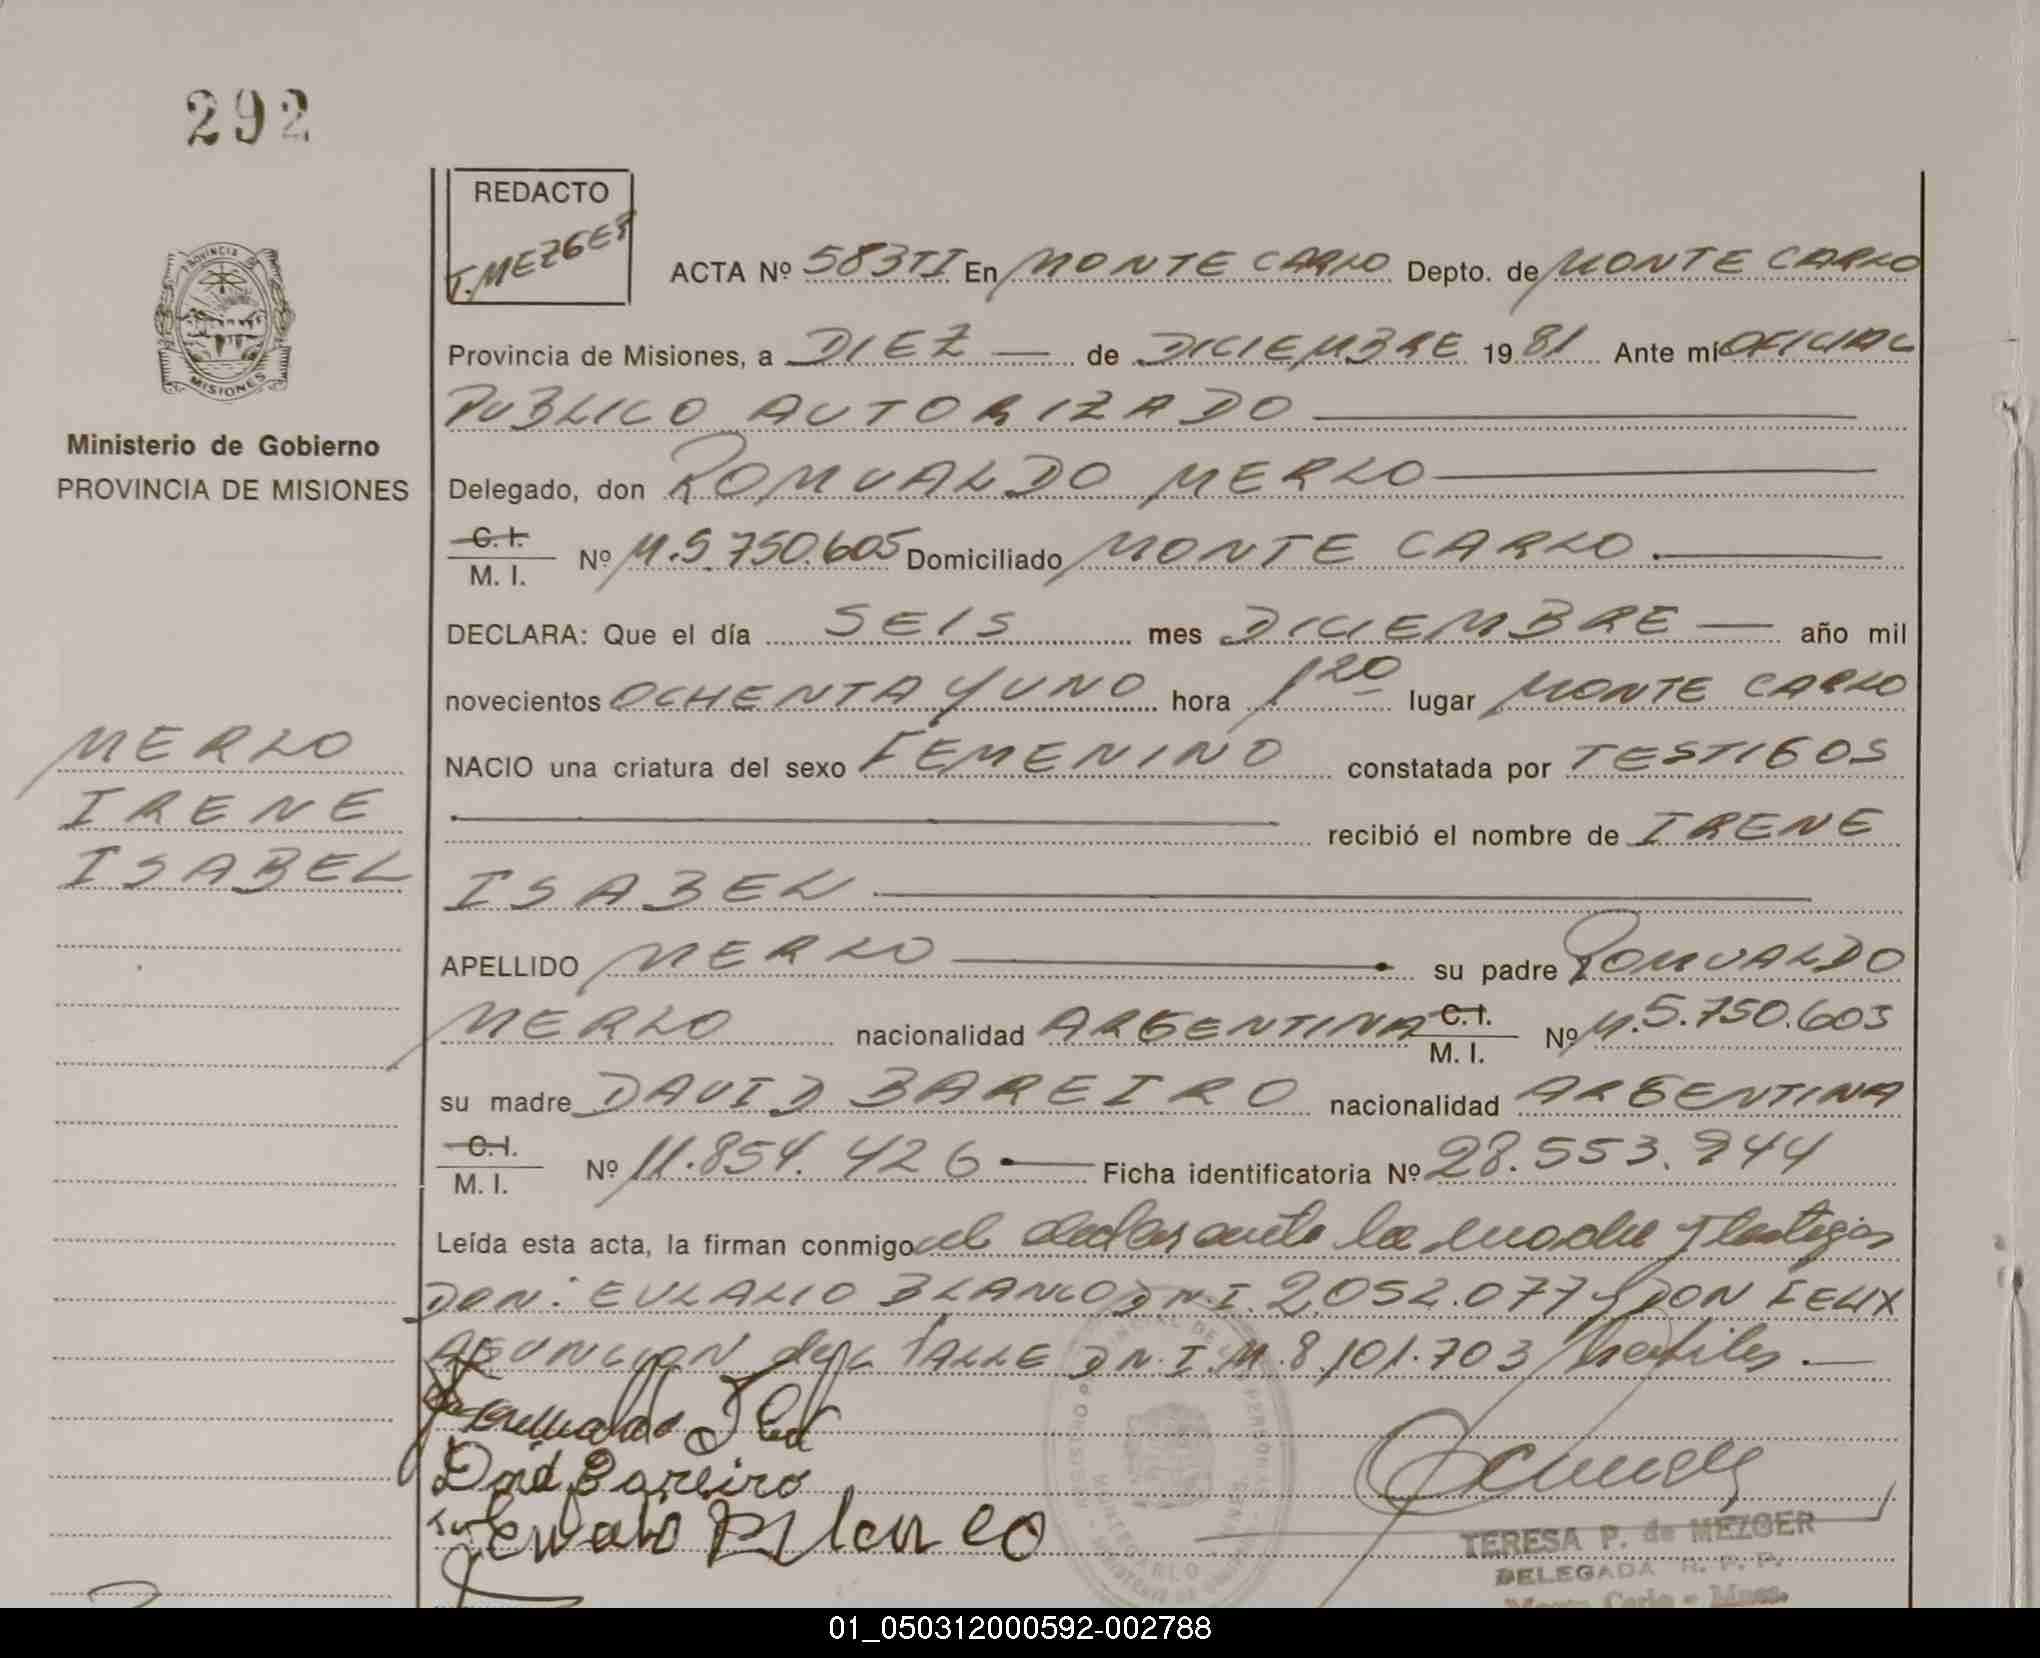 292
REDACTO
T. MEZGER
ACTA Nº 583TI En MONTE CARLO Depto. de MONTE CARLO
PROVINCIA DE
MISIONES
Provincia de Misiones, a DIEZ — de DICIEMBRE 1981 Ante mí OFICIAL
PUBLICO AUTORIZADO
Ministerio de Gobierno
PROVINCIA DE MISIONES
Delegado, don ROMUALDO MERLO
C. I.
M. I. Nº M.5.750.605 Domiciliado MONTE CARLO.
DECLARA: Que el día SEIS mes DICIEMBRE — año mil
novecientos OCHENTA Y UNO hora 1 20 lugar MONTE CARLO
MERLO
IRENE
ISABEL
NACIO una criatura del sexo FEMENINO constatada por TESTIGOS
recibió el nombre de IRENE
ISABEL
APELLIDO MERLO su padre ROMUALDO
MERLO nacionalidad ARGENTINA C. I. M. I. Nº M.5.750.603
su madre DAVID BAREIRO nacionalidad ARGENTINA
C. I.
M. I. Nº 11.854.426 — Ficha identificatoria Nº 28.553.944
Leída esta acta, la firman conmigo el declarante la madre y testigos
DON: EULALIO BLANCO D.N.I. 2.052.077 y DON FELIX
ASUNCION del VALLE D.N.I. M.8.101.703 habiles.—
David Bareiro
Eulalio Blanco
TERESA P. de MEZGER
DELEGADA R. P. P.
Monte Carlo - Mnes.
01_050312000592-002788